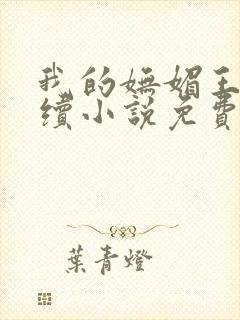 我的嫵媚王
續小說免費
葉青燈